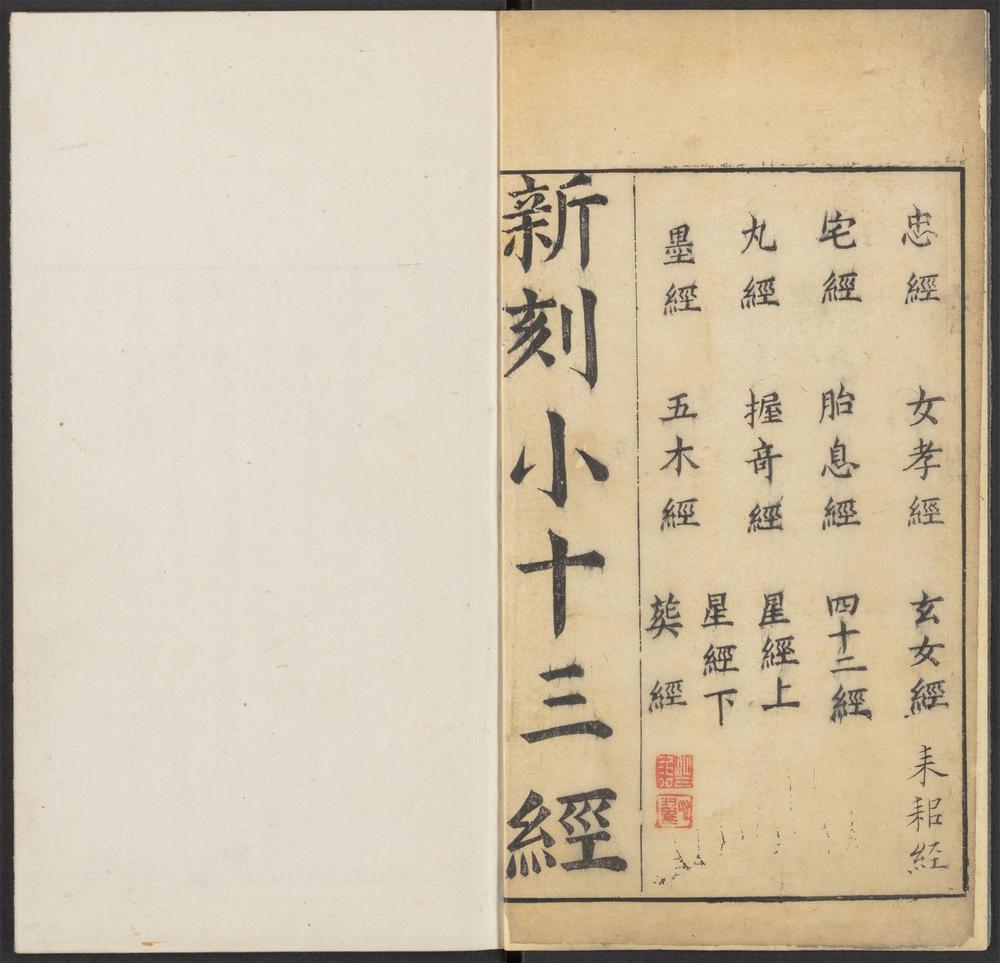 忠經 女孝經 玄女經 耒耜經
宅經 胎息經 四十二經
丸經 握竒經 星經上
星經下
墨經 五木經 棊經
新刻小十三經